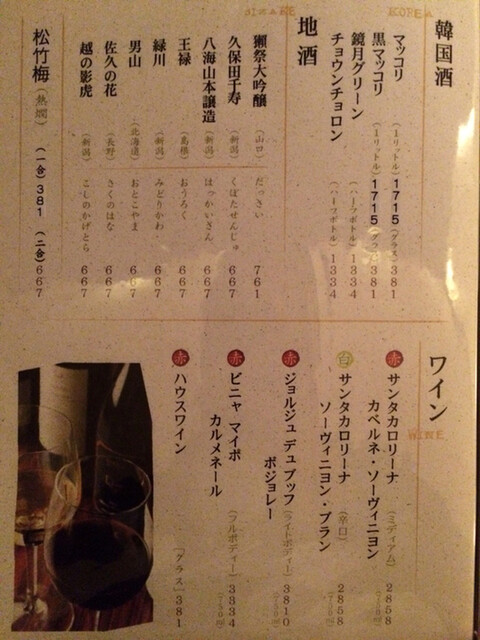 韓国酒
KOREA
マッコリ (1リットル) 1715 (グラス) 381
黒マッコリ (1リットル) 1715 (グラス) 381
鏡月グリーン (ハーフボトル) 1334
チョウンチョロン (ハーフボトル) 1334
地酒
獺祭大吟醸 (山口) だっさい 761
久保田千寿 (新潟) くぼたせんじゅ 667
八海山本醸造 (新潟) はっかいさん 667
王禄 (島根) おうろく 667
緑川 (新潟) みどりかわ 667
男山 (北海道) おとこやま 667
佐久の花 (長野) さくのはな 667
越の影虎 (新潟) こしのかげとら 667
松竹梅 (熱燗) (一合) 381 (二合) 667
ワイン
WINE
赤 サンタカロリーナ
カベルネ・ソーヴィニヨン (ミディアム) 2858
白 サンタカロリーナ
ソーヴィニヨン・ブラン (辛口) 2858
赤 ジョルジュ デュブッフ
ボジョレー (ライトボディー) 3810
赤 ビニャ マイポ
カルメネール (フルボディー) 3334
赤 ハウスワイン (グラス) 381